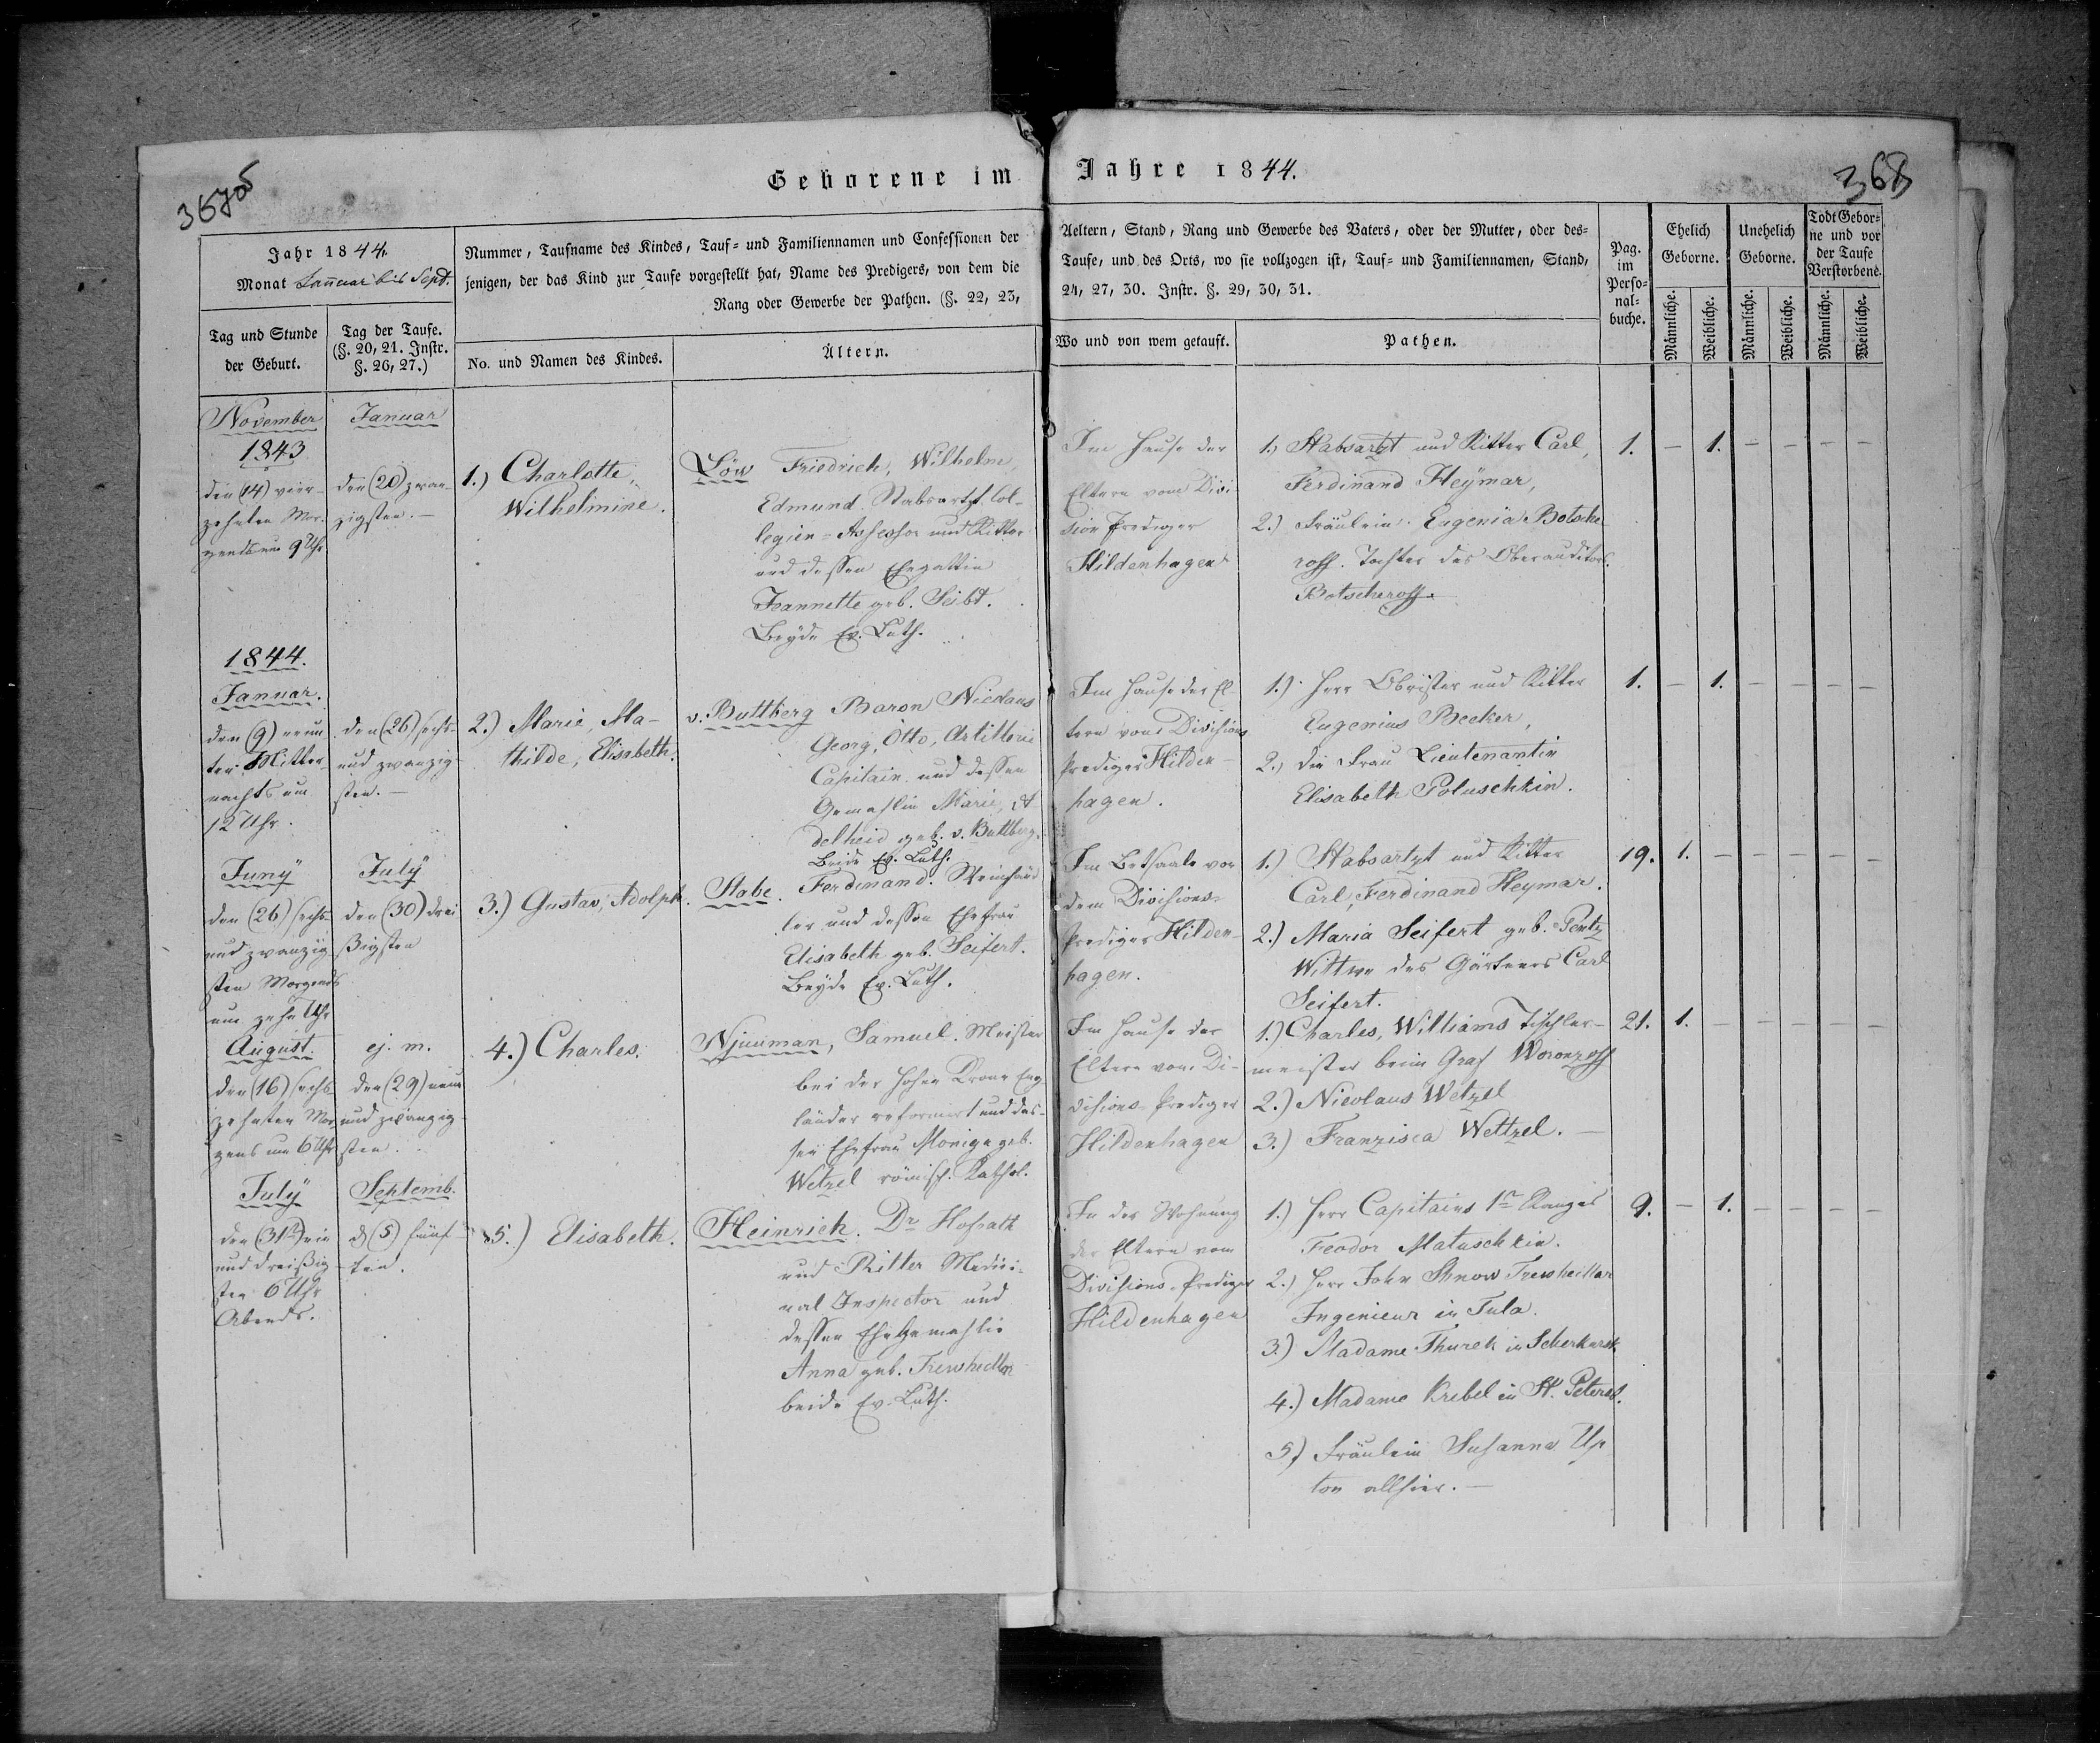 Geborene im Jahre 1844.
368
Jahr 1844.
Monat Januar bis Sept.
Nummer, Taufname des Kindes, Tauf- und Familiennamen und Confessionen der
jenigen, der das Kind zur Taufe vorgestellt hat, Name des Predigers, von dem die
Rang oder Gewerbe der Pathen. (§. 22, 23,
Aeltern, Stand, Rang und Gewerbe des Vaters, oder der Mutter, oder des-
Taufe, und des Orts, wo sie vollzogen ist, Tauf- und Familiennamen, Stand,
24, 27, 30. Instr. §. 29, 30, 31.
Pag.
im
Perso-
nal-
buche.
Ehelich
Geborne.
Unehelich
Geborne.
Todt Gebor-
ne und vor
der Taufe
Verstorbene.
Tag und Stunde
der Geburt.
Tag der Taufe.
(§. 20, 21. Instr.
§. 26, 27.)
No. und Namen des Kindes.
Ältern.
Wo und von wem getauft.
Pathen.
Männliche.
Weibliche.
Männliche.
Weibliche.
Männliche.
Weibliche.
November
1843
den (14) vier-
zehnten Mor-
gends um 9 Uhr
Januar
den (20) zwan-
zigsten. —
1.) Charlotte,
Wilhelmine.
Löw Friedrich, Wilhelm,
Edmund. Stabsartzt, Col-
legien-Assessor und Ritter
und dessen Ehegattin
Jeannette geb. Seibt.
Beyde Ev. Luth.
Im Hause der
Eltern vom Divi-
sion Prediger
Hildenhagen
1.) Stabsarzt und Ritter Carl,
Ferdinand Heymar,
2.) Fräulein Eugenia Botsche
roff. Tochter des Oberauditors
Botscheroff.
1. — 1. — — — —
1844.
Januar.
den (9) neun
ten Mitter-
nachts um
12 Uhr.
den (26) sechs-
und zwanzig-
sten. —
2.) Marie, Ma-
thilde, Elisabeth.
v. Buttberg Baron Nicolaus
Georg, Otto, Artillerie
Capitain und dessen
Gemahlin Marie, A
delheid geb. v. Buttberg.
Beide Ev. Luth.
Im Hause der El-
tern vom Divisions
Prediger Hilden-
hagen.
1.) Herr Obrister und Ritter
Eugenius Becker,
2.) die Frau Lieutenantin
Elisabeth Poluschkin.
1. — 1. — — — —
Juny
den (26) sechs-
und zwanzig-
sten Morgends
um zehn Uhr
July
den (30) drei
ßigsten
3.) Gustav, Adolph.
Stabe. Ferdinand. Weinhänd
ler und dessen Ehefrau
Elisabeth geb. Seifert.
Beyde Ev. Luth.
Im Betsaale von
dem Divisions-
Prediger Hilden-
hagen.
1.) Stabsartzt und Ritter
Carl, Ferdinand Heymar.
2.) Maria Seifert geb. Pentz
Wittwe des Gärtners Carl
Seifert.
19. 1. — — — — —
August.
den (16) sechs
zehnten Mor-
gens um 6 Uhr
ej. m.
den (29) neun
und zwanzig-
sten.
4.) Charles.
Njuuman, Samuel. Meister
bei der hohen Krone Eng
länder reformirt und des-
sen Ehefrau Moniga geb.
Wetzel römisch. Kathol.
Im Hause der
Eltern vom Di-
visions-Prediger
Hildenhagen
1.) Charles, Williams Tischler-
meister beim Graf Woronzoff
2.) Nicolaus Wetzel
3.) Franzisca Wettzel. —
21. 1. — — — — —
July
den (31st) ein
und dreißig
sten 6 Uhr
Abends.
Septemb.
d (5) fünf-
ten.
5.) Elisabeth.
Heinrich. Dr Hofrath
und Ritter Medici-
nal Inspector und
dessen Ehegemahlin
Anna geb. Trewheller
beide Ev. Luth.
In der Wohnung
der Eltern vom
Divisions-Prediger
Hildenhagen
1.) Herr Capitains 1n Ranges
Feodor Matuschkin.
2.) Herr John Shnow Trewheller
Ingenieur in Tula.
3.) Madame Thurek in
4.) Madame Krebel in St. Petersb.
5.) Fräulein Susanna Up
ton allhier. —
9. — 1. — — — —